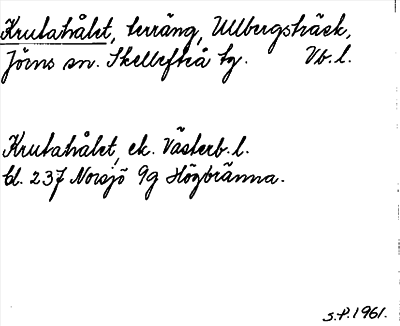 Krutahålet, terräng, Ullbergsträsk,
Jörns sn. Skellefteå tg. Vb. l.
Krutahålet, ek. Västerb. l.
bl. 237 Norsjö 9g Högbränna.
S.P. 1961.